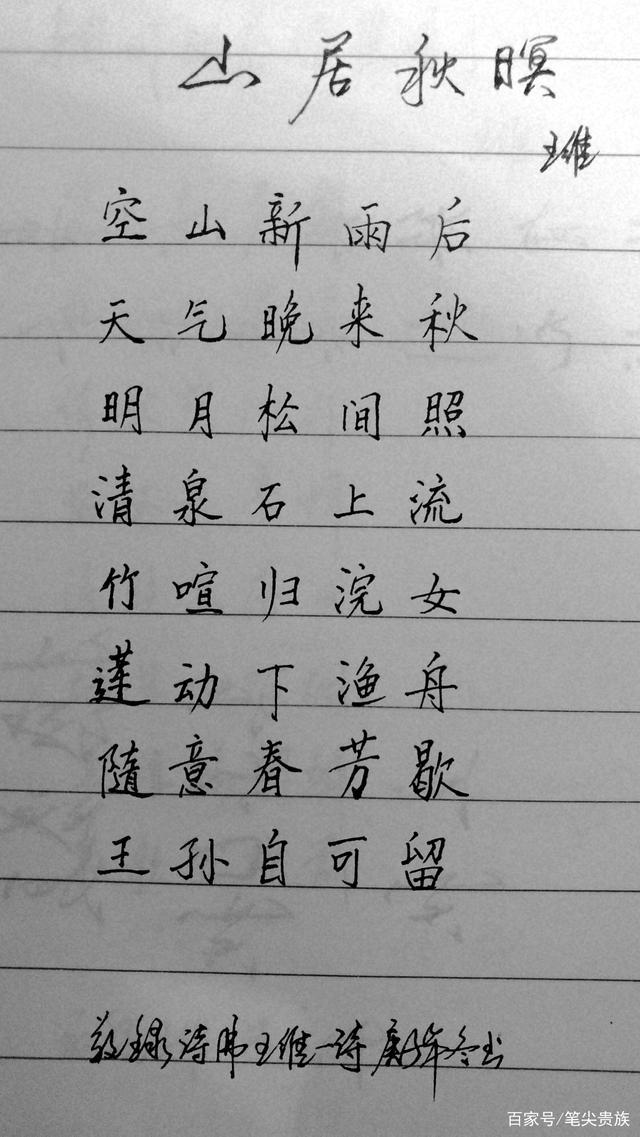 山居秋暝
王维
空山新雨后
天气晚来秋
明月松间照
清泉石上流
竹喧归浣女
莲动下渔舟
随意春芳歇
王孙自可留
敬录诗佛王维一诗 庚子年冬书
百家号/笔尖贵族